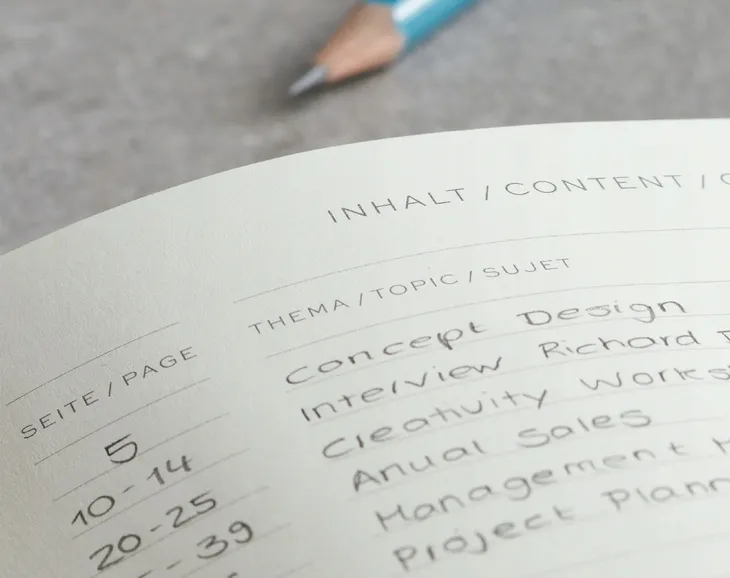 INHALT / CONTENT /
SEITE / PAGE THEMA / TOPIC / SUJET
5 Concept Design
10-14 Interview Richard
20-25 Creativity Works
-39 Anual Sales
Management
Project Plann